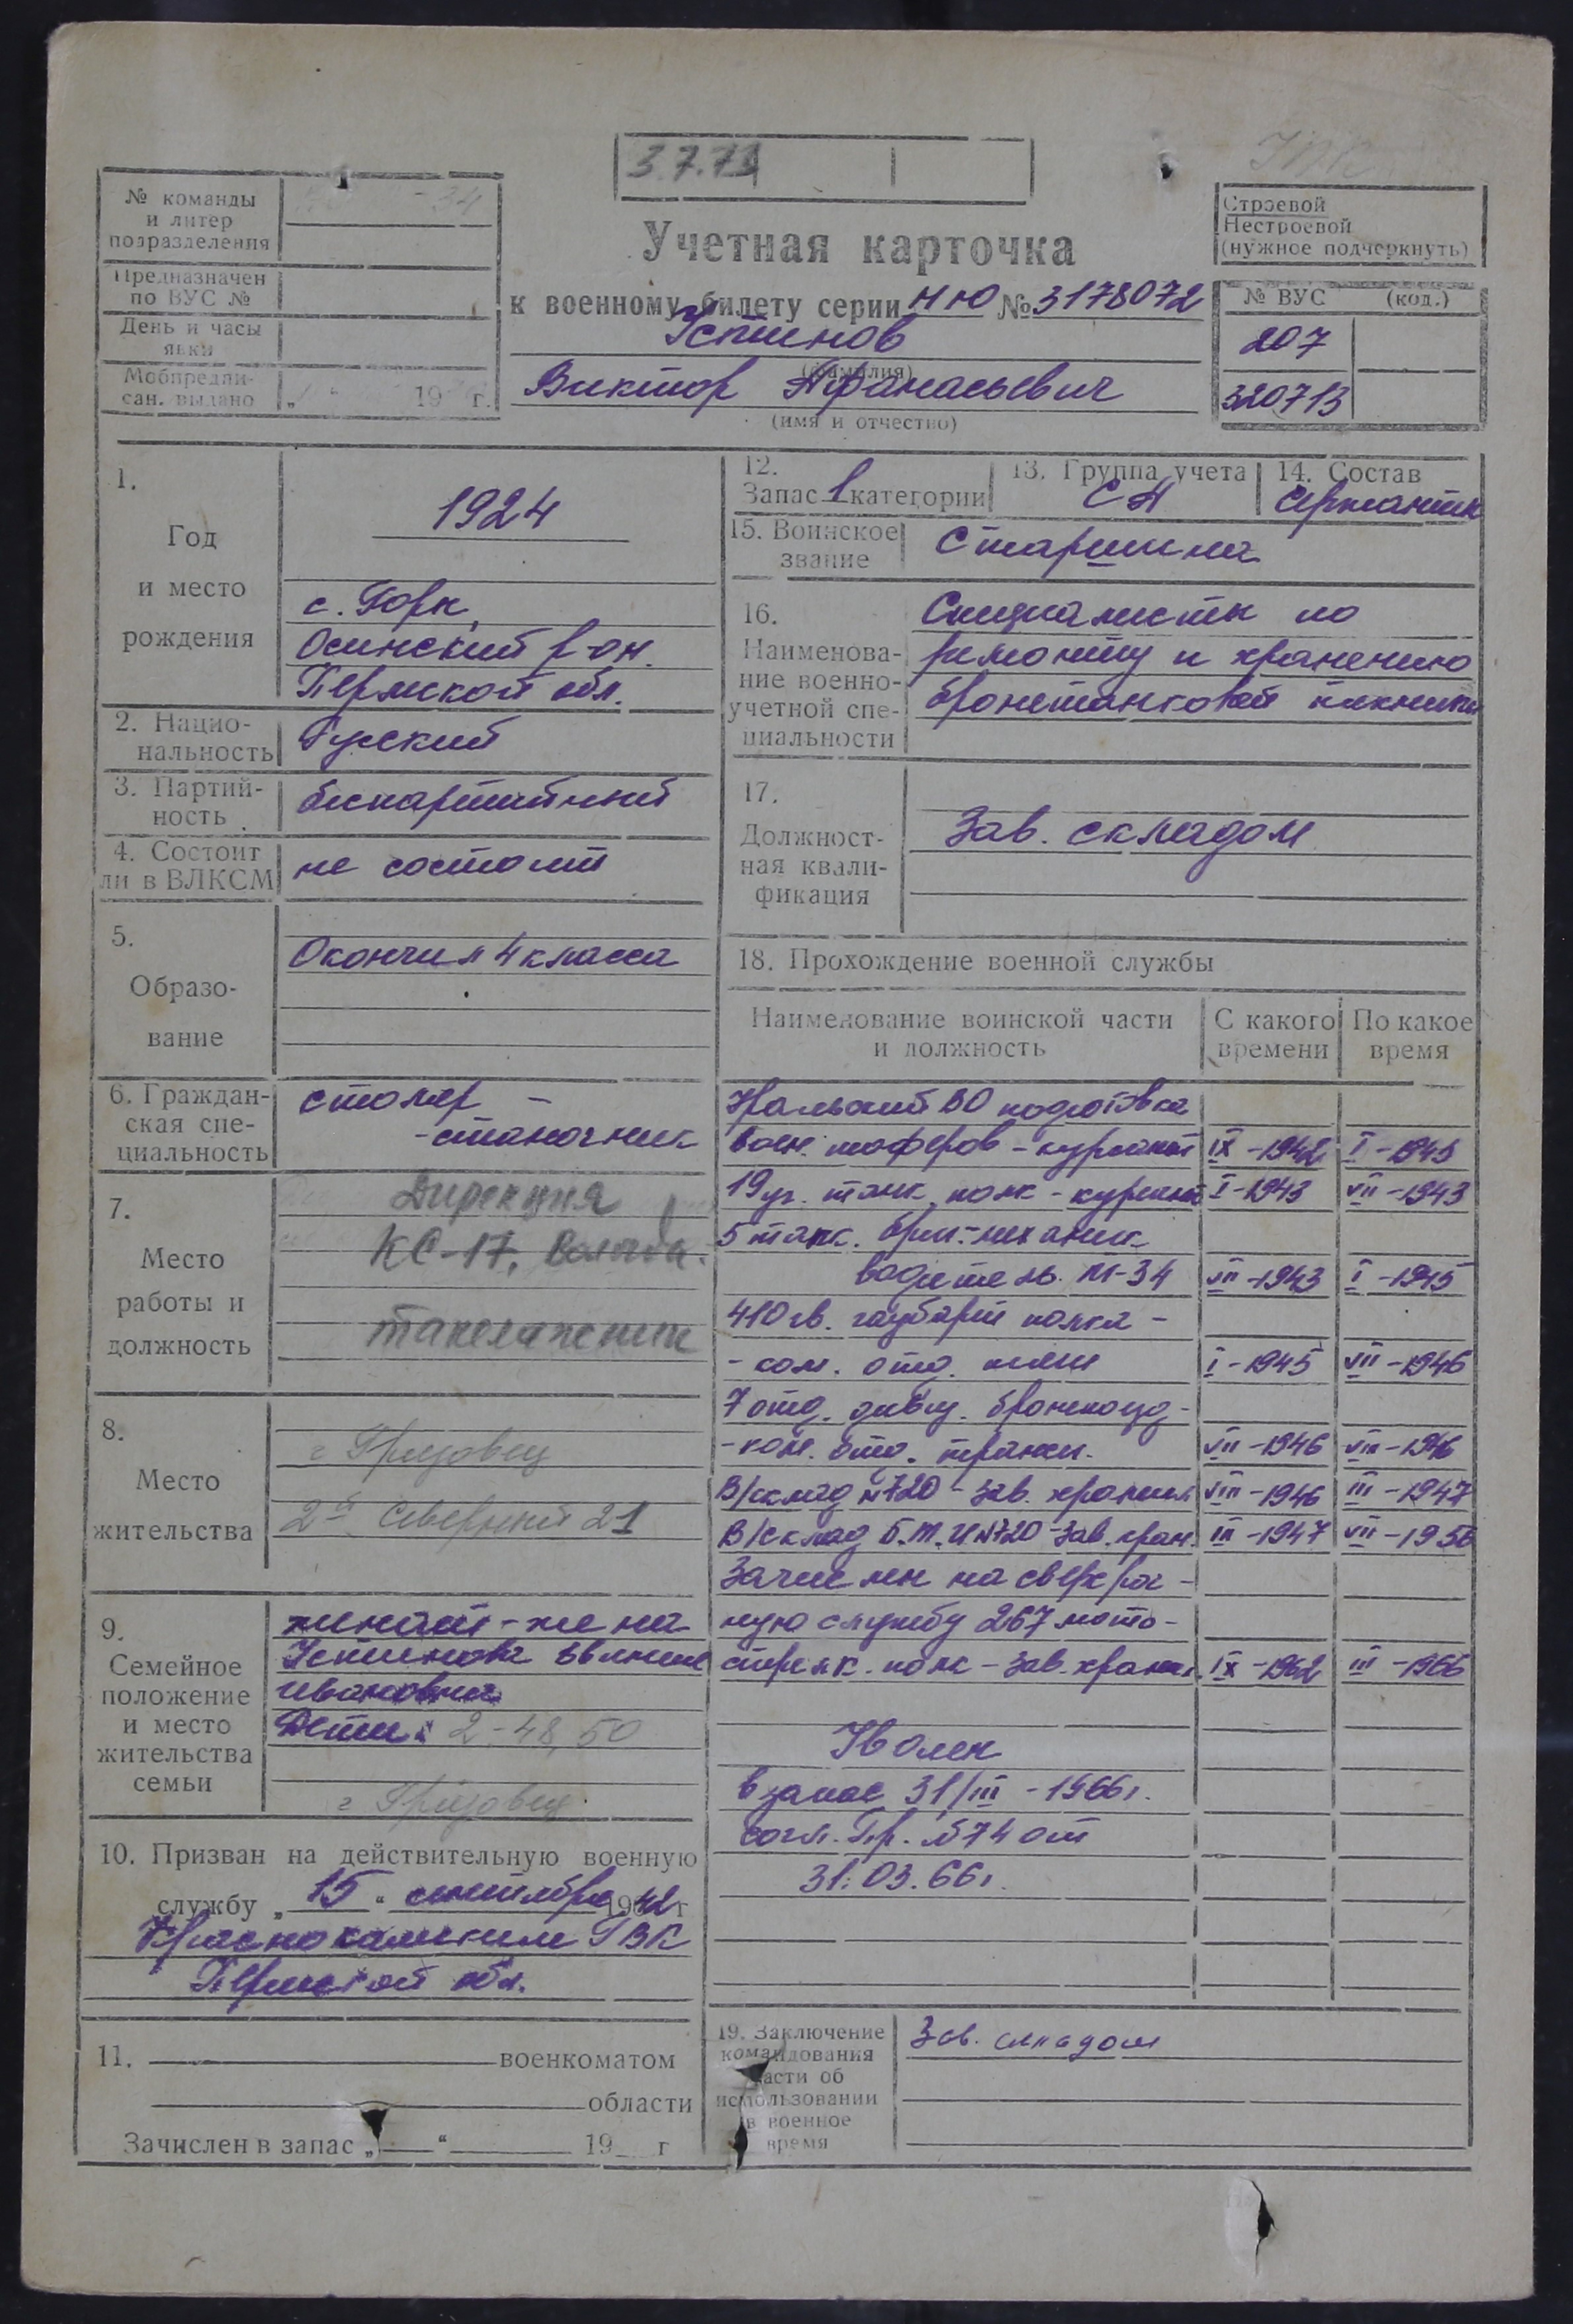 3.7.73
№ команды
и литер
подразделения
- 34
Предназначен
по ВУС №
День и часы
явки
Мобпредпи-
сан. выдано „ “ 19 г.
Учетная карточка
к военному билету серии НЮ № 3178072
Устинов
(фамилия)
Виктор Афанасьевич
(имя и отчество)
Строевой
Нестроевой
(нужное подчеркнуть)
№ ВУС (код.)
207
320713
1.
Год
и место
рождения
1924
с. Горы,
Осинский р-он.
Пермской обл.
2. Нацио-
нальность
Русский
3. Партий-
ность
беспартийный
4. Состоит
ли в ВЛКСМ
не состоит
5.
Образо-
вание
Окончил 4 класса
6. Граждан-
ская спе-
циальность
столяр -
- станочник
7.
Место
работы и
должность
Дирекция
КС-17, Вологда.
такелажник
8.
Место
жительства
г Грязовец
2й Северный 21
9.
Семейное
положение
и место
жительства
семьи
женат - жена
Устинова
Ивановна
Дети: 2 - 48, 50
г Грязовец.
10. Призван на действительную военную
службу „ 15 “ сентября 1942 г
Краснокамским ГВК
Пермской обл.
11. военкоматом
области
Зачислен в запас „ “ 19 г
12.
Запас 1 категории
13. Группа учета
СА
14. Состав
Сержанты
15. Воинское
звание
Старшина
16.
Наименова-
ние военно-
учетной спе-
циальности
Специалисты по
ремонту и хранению
бронетанковой техники
17.
Должност-
ная квали-
фикация
Зав. складом
18. Прохождение военной службы
Наименование воинской части
и должность
С какого
времени
По какое
время
Уральский ВО подготовка
воен. шоферов - курсант IX - 1942 I - 1943
19 уч. танк. полк - курсант I - 1943 VII - 1943
5 танк. бриг. - механик
водитель. Т-34 VII - 1943 I - 1945
410 гв. гаубарт полка -
- ком. отд. I - 1945 VII - 1946
7 отд. див. бронепоезд -
- ком. отд. VII - 1946 VIII - 1946
В/склад №720 - зав. хранил VIII - 1946 III - 1947
В/склад Б.Т.И №720 - Зав. хран. III - 1947 VII - 1956
Зачислен на сверхсроч -
ную службу 267 мото -
стрелк. полк - зав. хранил. IX - 1962 III - 1966
Уволен
в запас 31/III - 1966 г.
согл. Пр. №74 от
31.03.66 г.
19. Заключение
командования
части об
использовании
в военное
время
Зав. складом